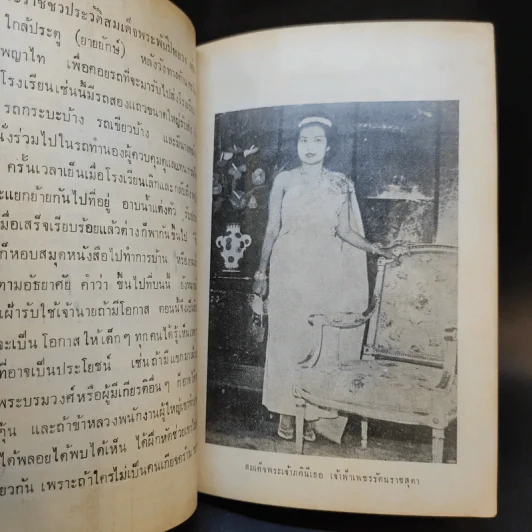 ประวัติสมเด็จพระพันปีหลวง
ใกล้ประตู (ยายยักษ์) หลังวัง
พญาไท เพื่อคอยรถที่จะมารับไปส่งโรงเรียน
โรงเรียนเช่นนี้มีรถสองแถวขนาดใหญ่
รถกระบะบ้าง รถเขียวบ้าง
นั่งร่วมไปในรถทำนองผู้ควบคุมดูแล
ครั้นเวลาเย็นเมื่อโรงเรียนเลิกและ
แยกย้ายกันไปที่อยู่ อาบน้ำแต่งตัว
เมื่อเสร็จเรียบร้อยแล้วต่างก็พากันขึ้นไป
ก็หอบสมุดหนังสือไปทำการบ้าน
ตามอัธยาศัย คำว่า ขึ้นไปที่บนนั้น
เฝ้ารับใช้เจ้านายถ้ามีโอกาส ตอนนี้
จะเป็นโอกาสให้เด็กๆ ทุกคนได้รู้เห็น
ที่อาจเป็นประโยชน์ เช่นถ้ามีแขก
พระบรมวงศ์หรือผู้มีเกียรติอื่นๆ ก็
คุ้น และถ้าข้าหลวงพนักงานผู้ใหญ่
ได้พลอยได้พบได้เห็น ได้ฝึกหัดช่วย
เพราะถ้าใครไม่เป็นคนเกียจคร้าน
สมเด็จพระเจ้าภคินีเธอ เจ้าฟ้าเพชรรัตนราชสุดา